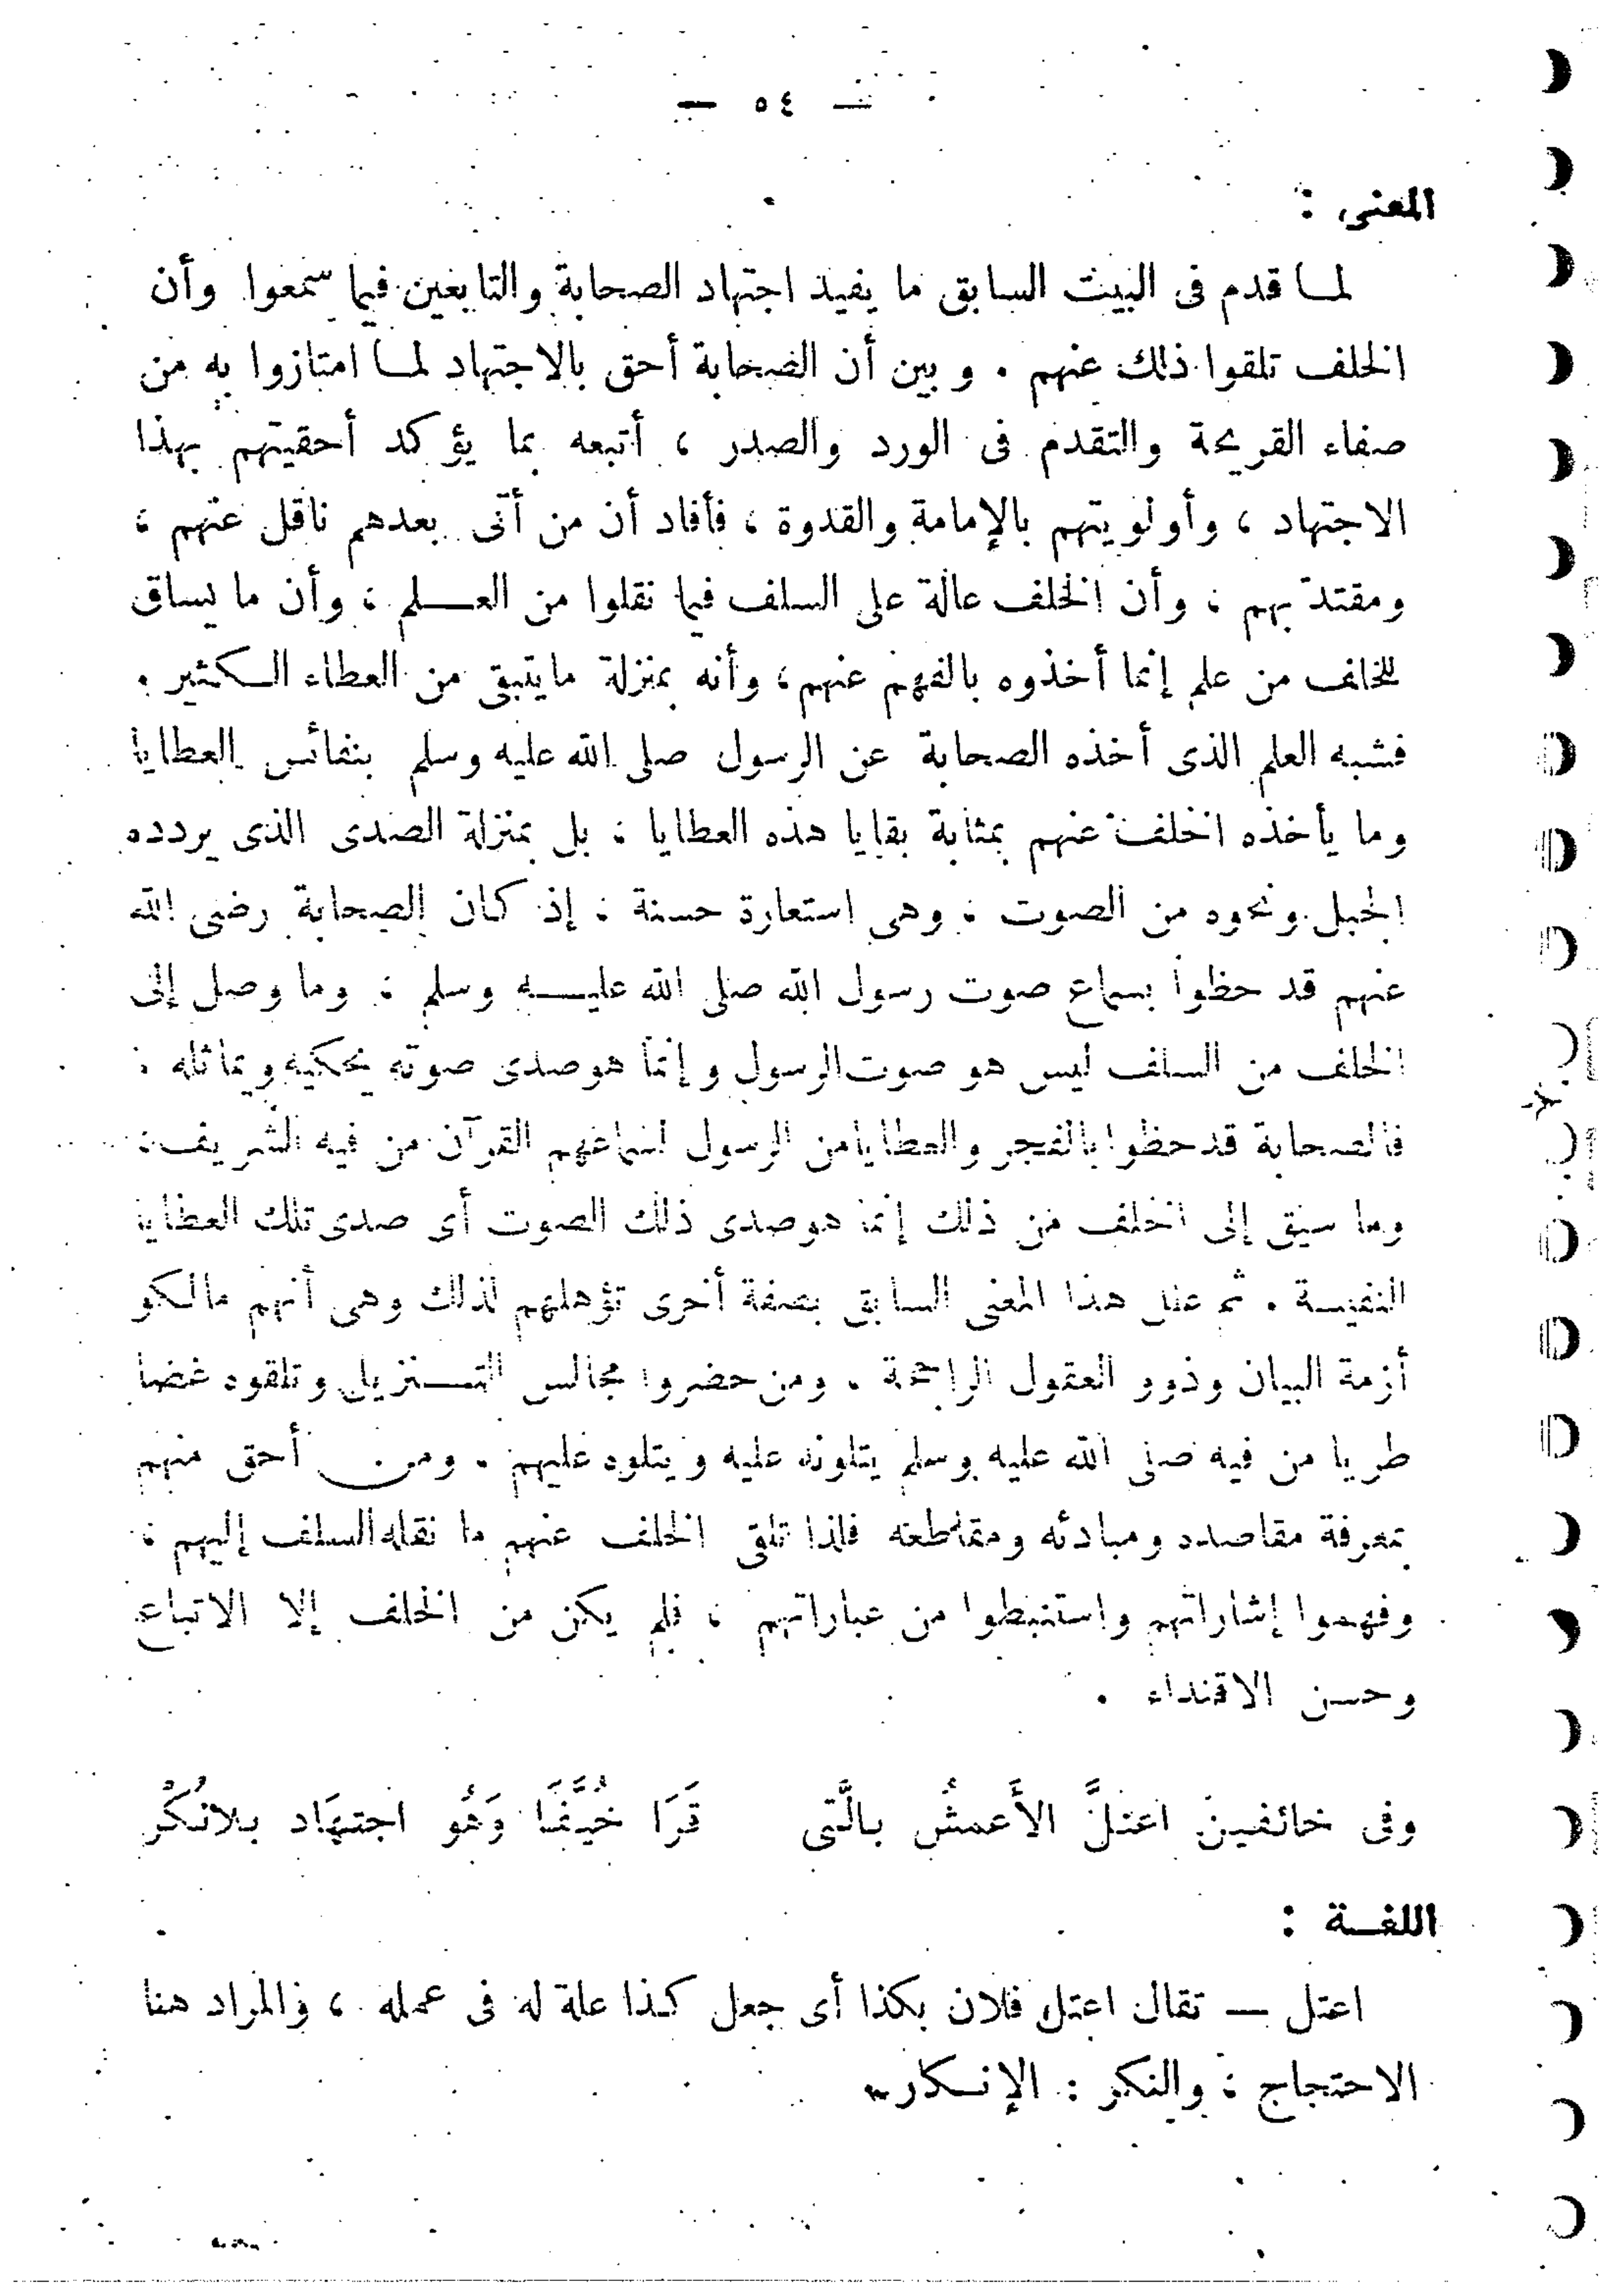 — ٥٤ —
المعنى :
لما قدم فى البيت السابق ما يفيد اجتهاد الصحابة والتابعين فيما سمعوا وأن
الخلف تلقوا ذلك عنهم . وبين أن الصحابة أحق بالاجتهاد لما امتازوا به من
صفاء القريحة والتقدم فى الورد والصدر ، أتبعه بما يؤكد أحقيتهم بهذا
الاجتهاد ، وأولويتهم بالإمامة والقدوة ، فأفاد أن من أتى بعدهم ناقل عنهم ،
ومقتد بهم ، وأن الخلف عالة على السلف فيما نقلوا من العلم ، وأن ما يساق
للخلف من علم إنما أخذوه بالفهم عنهم، وأنه بمنزلة ما يتبقى من العطاء الكثير .
فشبه العلم الذى أخذه الصحابة عن الرسول صلى الله عليه وسلم بنفائس العطايا
وما يأخذه الخلف عنهم بمثابة بقايا هذه العطايا ، بل بمنزلة الصدى الذى يردده
الجبل ونحوه من الصوت ، وهى استعارة حسنة ، إذ كان الصحابة رضى الله
عنهم قد حظوا بسماع صوت رسول الله صلى الله عليه وسلم ، وما وصل إلى
الخلف من السلف ليس هو صوت الرسول وإنما هو صدى صوته يحكيه ويماثله ،
فالصحابة قد حظوا بالفجر والعطايا من الرسول لسماعهم القرآن من فيه الشريف ،
وما سيق إلى الخلف من ذلك إنما هو صدى ذلك الصوت أى صدى تلك العطايا
النفيسة . ثم علل هذا المعنى السابق بصفة أخرى تؤهلهم لذلك وهى أنهم مالكو
أزمة البيان وذوو العقول الراجحة . ومن حضروا مجالس التنزيل وتلقوه غضا
طريا من فيه صلى الله عليه وسلم يتلونه عليه ويتلوه عليهم . ومن أحق منهم
بمعرفة مقاصده ومبادئه ومقاطعه فلذا تلقى الخلف عنهم ما نقله السلف إليهم ،
وفهموا إشاراتهم واستنبطوا من عباراتهم ، فلم يكن من الخلف إلا الاتباع
وحسن الاقتداء .
وفى خائفين اعتلَّ الأَعمشُ بالَّتى قَرَا خُيَّفًا وَهُو اجتهَاد بلانُكْر
اللغة :
اعتل — تقال اعتل فلان بكذا أى جعل كذا علة له فى عمله ، والمراد هنا
الاحتجاج ، والنكر : الإنكار